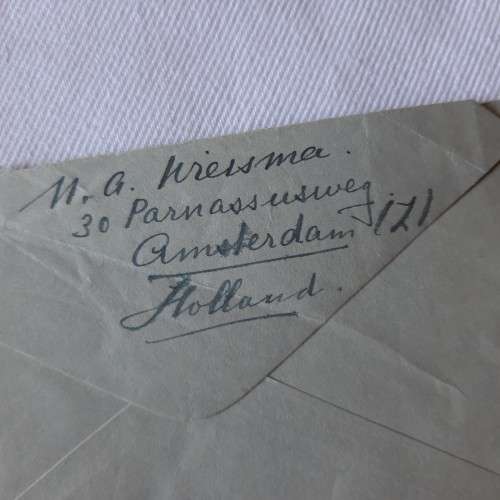 M. A. Wiersma.
30 Parnassusweg.
Amsterdam (Z)
Holland.